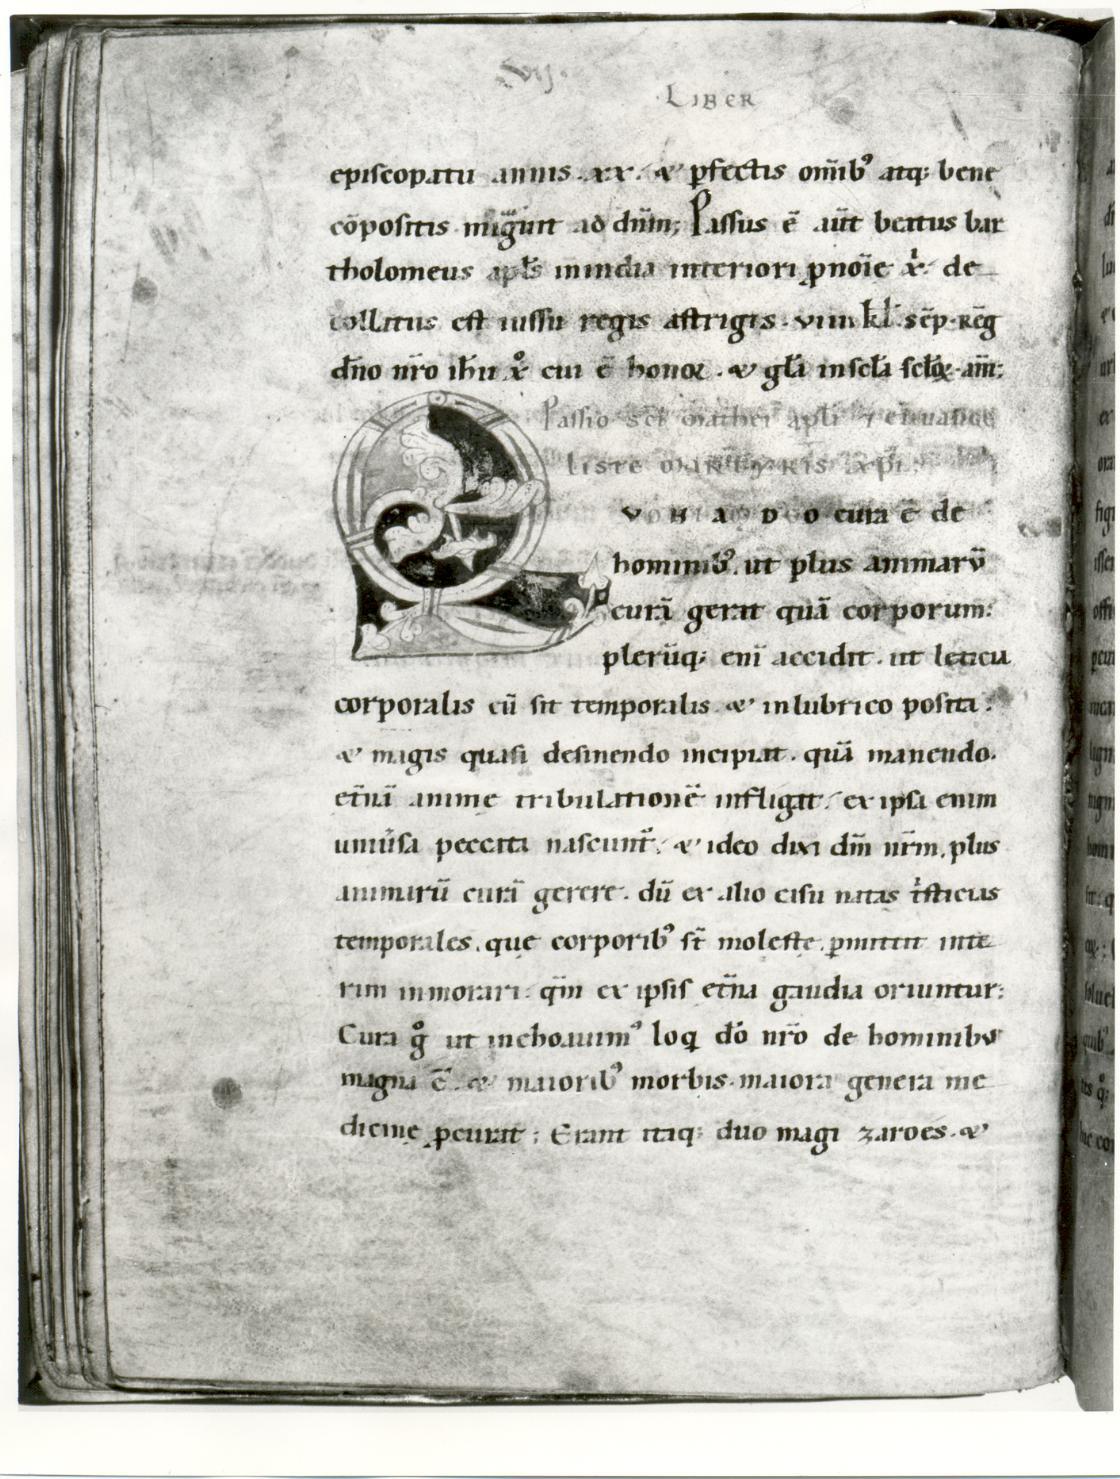 .vij.
LIBER
episcopatu annis .xx. & ꝑfectis om̄ibꝰ atq; bene
cōpositis migᷓuit ad dn̄m; Passus ē aūt beatus bar
tholomeus apl̄s in india interiori ꝓ noīe x̄ᵢ & de
collatus est iussu regis astrigis .viiii. kl̄. sēp. Rēg
dn̄o nr̄o ih̄u x̄º cui ē honor. & gl̄a in scl̄a scl̄oꝝ. am̄;
Passio s̄ci mathei apl̄i ⁊ euuange
liste MARTYRIS xp̄i.
QVNADO cura ē de
hominibꝰ. ut plus animarū
curā gerat quā corporum:
plerūq; enī accidit. ut leticia
corporalis cū sit temporalis. & in lubrico posita:
& magis quasi desinendo incipiat. quā manendo.
et̄nā anime tribulationē infligat. ex ipsa enim
uniūsa peccata nascunt̄. & ideo dixi dm̄ nr̄m. plus
animarū curā gerere. dū ex alio cisu natas tⁱsticias
temporales. que corporibꝰ st̄ moleste. ꝑmittit inte
rim inmorari. qm̄ ex ipsis et̄na gaudia oriuntur:
Cura gº ut inchoauimꝰ loq dō nr̄o de hominibus
magna ē. & maioribꝰ morbis. maiora genera me
dicine ꝓcurat; Erant itaq; duo magi zaroes. &